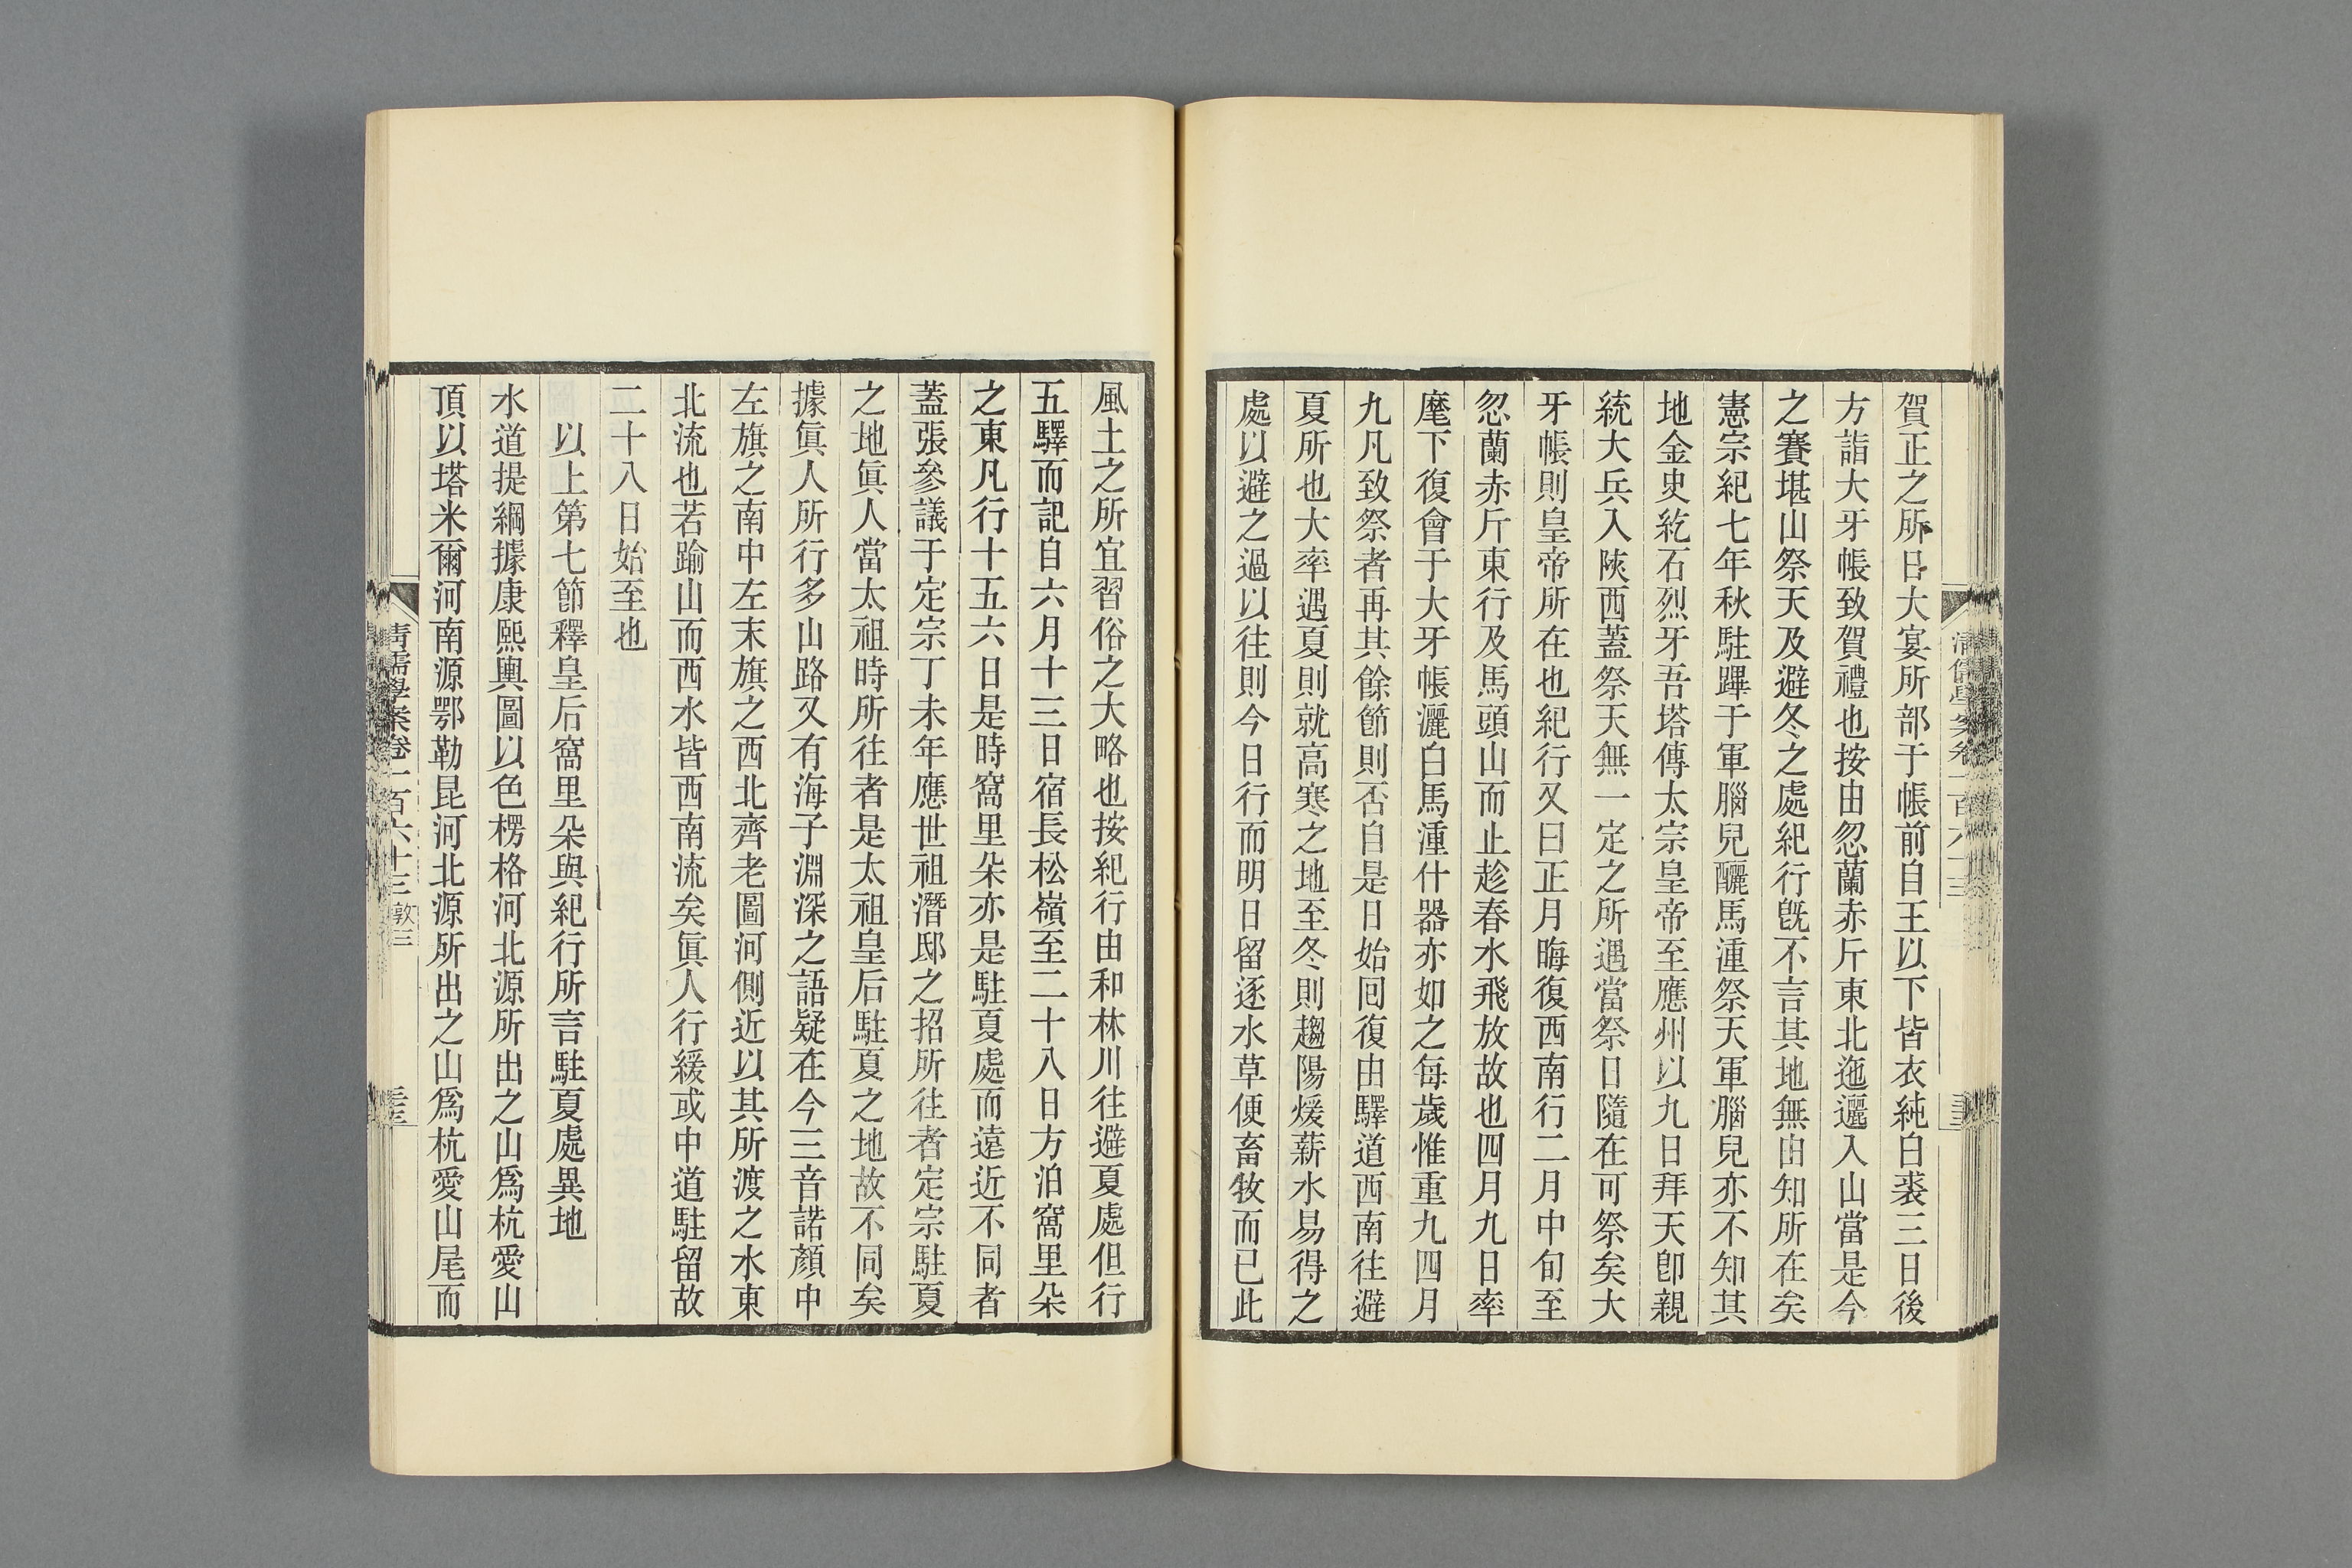 賀正之所日大宴所部于帳前自王以下皆衣純白裘三日後
方詣大牙帳致賀禮也按由忽蘭赤斤東北迤邐入山當是今
之賽堪山祭天及避冬之處紀行旣不言其地無由知所在矣
憲宗紀七年秋駐蹕于軍腦兒釃馬湩祭天軍腦兒亦不知其
地金史紇石烈牙吾塔傳太宗皇帝至應州以九日拜天卽親
統大兵入陜西蓋祭天無一定之所遇當祭日隨在可祭矣大
牙帳則皇帝所在也紀行又曰正月晦復西南行二月中旬至
忽蘭赤斤東行及馬頭山而止趁春水飛放故也四月九日率
麾下復會于大牙帳灑白馬湩什器亦如之每歲惟重九四月
九凡致祭者再其餘節則否自是日始回復由驛道西南往避
夏所也大率遇夏則就高寒之地至冬則趨陽煖薪水易得之
處以避之過以往則今日行而明日留逐水草便畜牧而已此
風土之所宜習俗之大略也按紀行由和林川往避夏處但行
五驛而記自六月十三日宿長松嶺至二十八日方泊窩里朶
之東凡行十五六日是時窩里朶亦是駐夏處而遠近不同者
蓋張參議于定宗丁未年應世祖潛邸之招所往者定宗駐夏
之地眞人當太祖時所往者是太祖皇后駐夏之地故不同矣
據眞人所行多山路又有海子淵深之語疑在今三音諾顏中
左旗之南中左末旗之西北齊老圖河側近以其所渡之水東
北流也若踰山而西水皆西南流矣眞人行緩或中道駐留故
二十八日始至也
以上第七節釋皇后窩里朶與紀行所言駐夏處異地
水道提綱據康熙輿圖以色楞格河北源所出之山爲杭愛山
頂以塔米爾河南源鄂勒昆河北源所出之山爲杭愛山尾而
清儒學案卷一百六十三 敦三